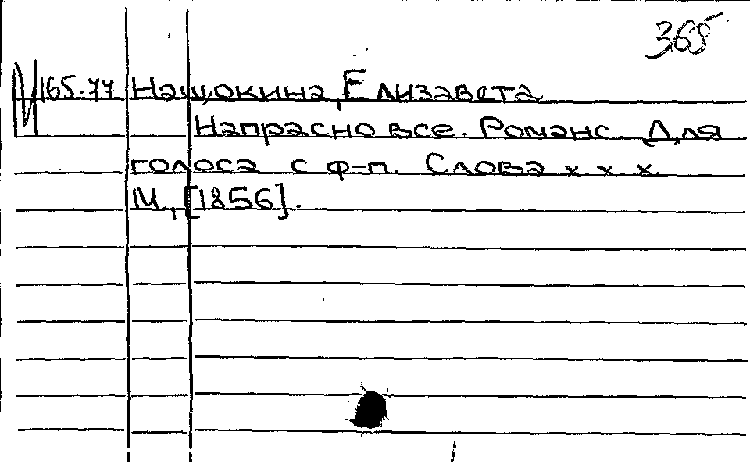 365
И 165.77 Нащокина, Елизавета
Напрасно все. Романс. Для
голоса с ф-п. Слова х х х
М., [1856].